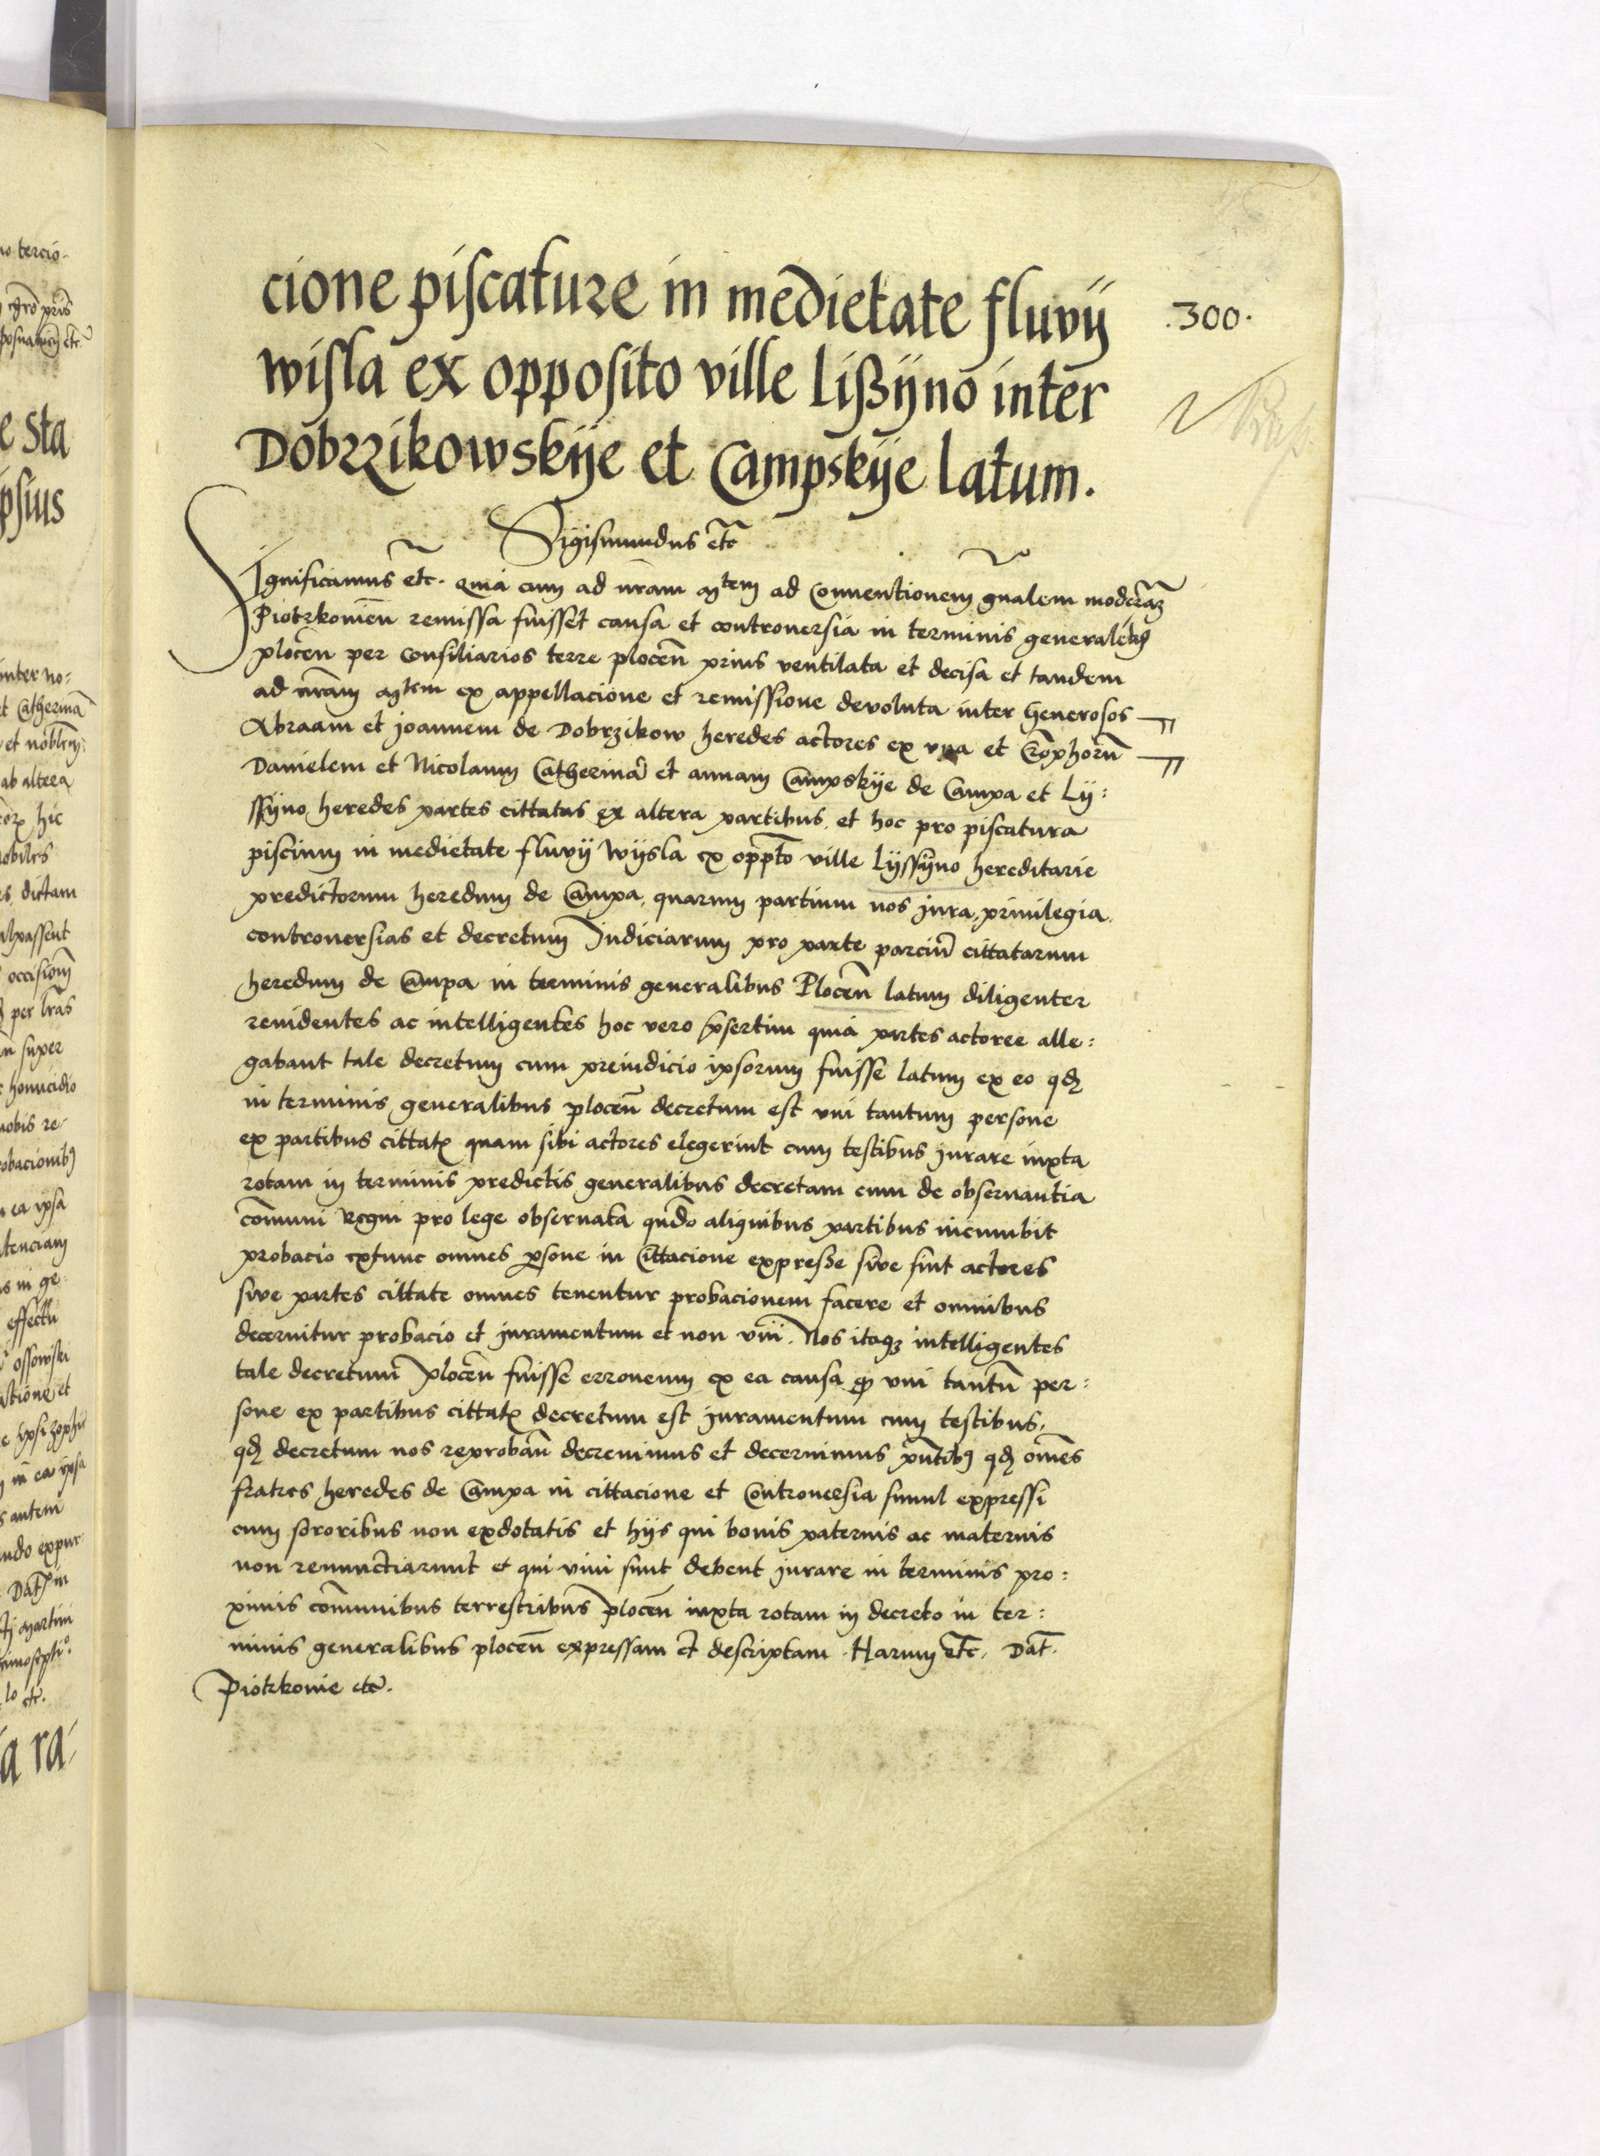 cione piscature in medietate fluvij
.300.
wisla ex opposito ville Lißÿno inter
Dobrzikowskÿe et Campskÿe latum.
Sigismundus etc̄
Significamus etc. Quia cum ad nr̄am M^tem ad Conuentionem gn̄alem modernā
Piotrkouien̄ remissa fuisset causa et controuersia in terminis generalib9
plocen̄ per Consiliarios terre plocen̄ prius ventilata et decisa et tandem
ad nr̄am M^tem ex appellacione et remissione devoluta inter Generosos
Abraam et Joannem de Dobrzikow heredes actores ex vna et
Danielem et Nicolaum Catherinā et annam Campskÿe de Campa et Lÿ:
ssÿno heredes partes cittatas ex altera partibus. et hoc pro piscatura
piscium in medietate fluvÿ Wÿsla ex opp̄to ville Lÿssÿno hereditarie
predictorum heredum de Campa, quarum partium nos jura, priuilegia
controuersias et decretum Judiciarum pro parte parciū cittatarum
heredum de Campa in terminis generalibus Plocen̄ latum diligenter
reuidentes ac intelligentes hoc vero p̄sertim quia partes actoree alle:
gabant tale decretum cum preiudicio ipsorum fuisse latum ex eo qđ
in terminis generalibus plocen̄ decretum est vni tantum persone
ex partibus cittat̄ quam sibi actores elegerint cum testibus jurare iuxta
rotam in terminis predictis generalibus decretam cum de obseruantia
com̄uni Regni pro lege obseruata qn̄do aliquibus partibus incumbit
probacio extunc omnes p̄sone in Cittacione expresse sive sint actores
sive partes cittate omnes tenentur probacionem facere et omnibus
decernitur probacio et juramentum et non vni. Nos itaqȝ intelligentes
tale decretum plocen̄ fuisse erroneum ex ea causa qđ vni tantū per:
sone ex partibus cittat̄ decretum est juramentum cum testibus,
qđ decretum nos reproban̄ decreuimus et decernimus p̄ntib9 qđ om̄es
fratres heredes de Campa in cittacione et Controuersia simul expressi
cum sororibus non exdotatis et hijs qui bonis paternis ac maternis
non renunctiarunt et qui viui sunt debent jurare in terminis pro:
ximis com̄unibus terrestribus plocen̄ iuxta rotam in decreto in ter:
minis generalibus plocen̄ expressam et descriptam. Harum etc̄. Dat̄.
Piotrkouie etc̄.